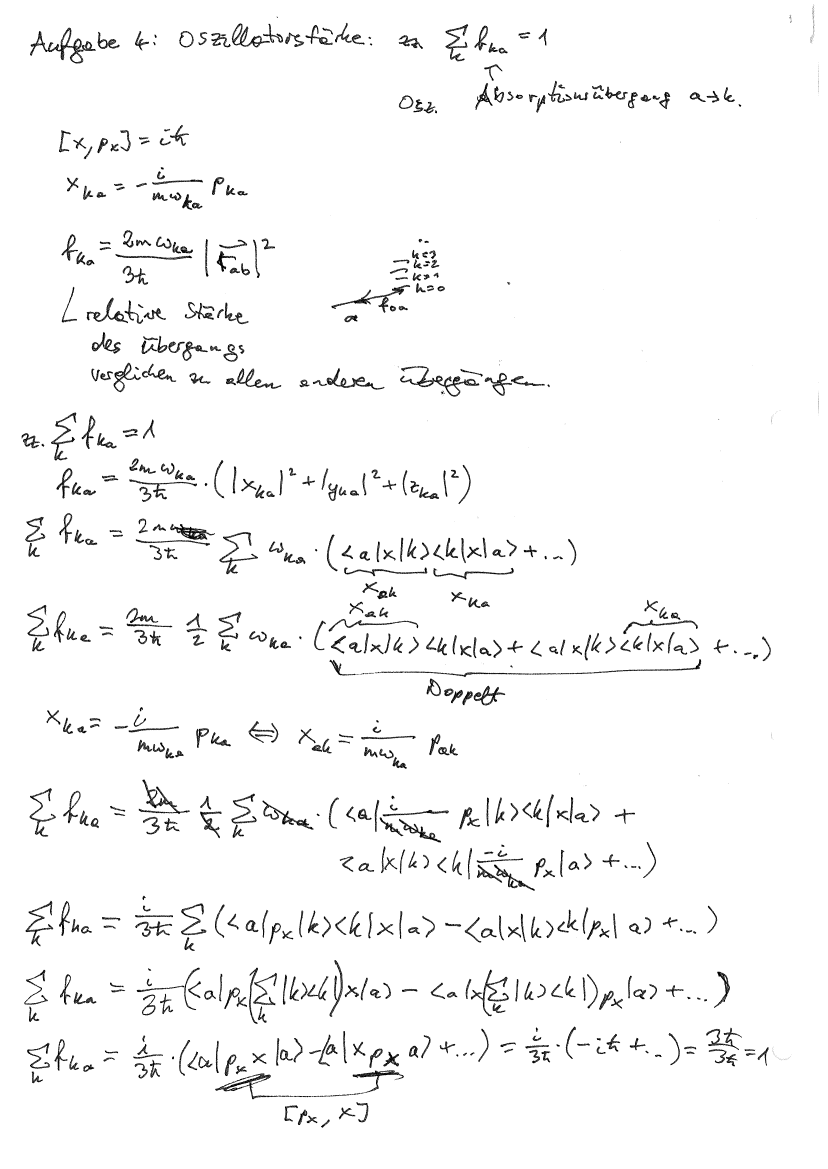 Aufgabe 4: Oszillatorstärke: zz \sum_k f_{ka} = 1
↑
Osz. Absorptionsübergang a→k.
[x, p_x] = iħ
x_{ka} = -\frac{i}{mω_{ka}} p_{ka}
f_{ka} = \frac{2mω_{ka}}{3ħ} |\vec{r}_{ab}|^2
k=3
k=2
k=1
k=0
a f_{0a}
relative Stärke
des Übergangs
verglichen zu allen anderen Übergängen.
zz. \sum_k f_{ka} = 1
f_{ka} = \frac{2mω_{ka}}{3ħ} · (|x_{ka}|^2 + |y_{ka}|^2 + |z_{ka}|^2)
\sum_k f_{ka} = \frac{2m}{3ħ} \sum_k ω_{ka} · (<a|x|k><k|x|a> + ...)
x_{ak} x_{ka}
x_{ak} x_{ka}
\sum_k f_{ka} = \frac{2m}{3ħ} \frac{1}{2} \sum_k ω_{ka} · (<a|x|k><k|x|a> + <a|x|k><k|x|a> + ...)
Doppelt
x_{ka} = -\frac{i}{mω_{ka}} p_{ka} ⇔ x_{ak} = \frac{i}{mω_{ka}} p_{ak}
\sum_k f_{ka} = \frac{2m}{3ħ} \frac{1}{2} \sum_k ω_{ka} · (<a|\frac{i}{mω_{ka}} p_x|k><k|x|a> +
<a|x|k><k|\frac{-i}{mω_{ka}} p_x|a> + ...)
\sum_k f_{ka} = \frac{i}{3ħ} \sum_k (<a|p_x|k><k|x|a> - <a|x|k><k|p_x|a> + ...)
\sum_k f_{ka} = \frac{i}{3ħ} (<a|p_x(\sum_k |k><k|)x|a> - <a|x(\sum_k |k><k|)p_x|a> + ...)
\sum_k f_{ka} = \frac{i}{3ħ} · (<a|p_x x|a> - <a|x p_x a> + ...) = \frac{i}{3ħ} · (-iħ + ...) = \frac{3ħ}{3ħ} = 1
[p_x, x]